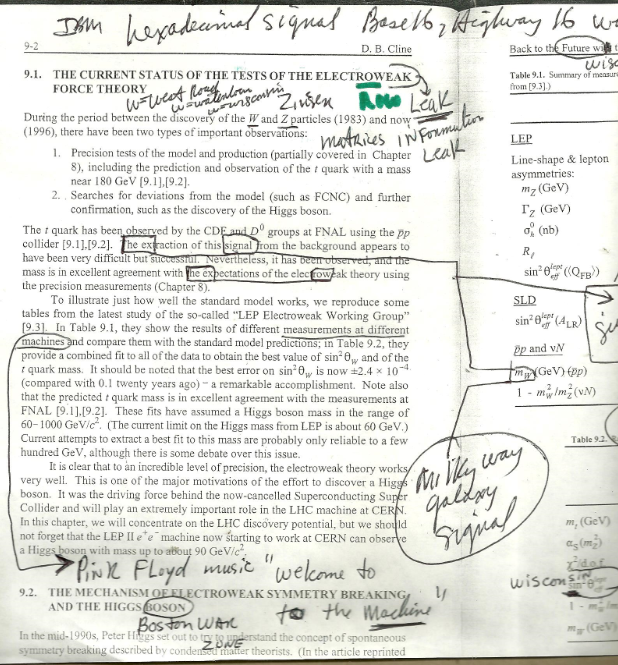 IBM hexadecimal signal Base 16, Highway 16
9-2
D. B. Cline
9.1. THE CURRENT STATUS OF THE TESTS OF THE ELECTROWEAK
FORCE THEORY
w=west Road
w=waterloo
w=wisconsin
Row Leak
During the period between the discovery of the W and Z particles (1983) and now
(1996), there have been two types of important observations:
matrixes information
Leak
1. Precision tests of the model and production (partially covered in Chapter
8), including the prediction and observation of the t quark with a mass
near 180 GeV [9.1],[9.2].
2. Searches for deviations from the model (such as FCNC) and further
confirmation, such as the discovery of the Higgs boson.
The t quark has been observed by the CDF and D⁰ groups at FNAL using the p̄p
collider [9.1],[9.2]. The extraction of this signal from the background appears to
have been very difficult but successful. Nevertheless, it has been observed, and the
mass is in excellent agreement with the expectations of the electroweak theory using
the precision measurements (Chapter 8).
To illustrate just how well the standard model works, we reproduce some
tables from the latest study of the so-called "LEP Electroweak Working Group"
[9.3]. In Table 9.1, they show the results of different measurements at different
machines and compare them with the standard model predictions; in Table 9.2, they
provide a combined fit to all of the data to obtain the best value of sin²θw and of the
t quark mass. It should be noted that the best error on sin²θw is now ±2.4 × 10⁻⁴
(compared with 0.1 twenty years ago) – a remarkable accomplishment. Note also
that the predicted t quark mass is in excellent agreement with the measurements at
FNAL [9.1],[9.2]. These fits have assumed a Higgs boson mass in the range of
60–1000 GeV/c². (The current limit on the Higgs mass from LEP is about 60 GeV.)
Current attempts to extract a best fit to this mass are probably only reliable to a few
hundred GeV, although there is some debate over this issue.
It is clear that to an incredible level of precision, the electroweak theory works
very well. This is one of the major motivations of the effort to discover a Higgs
boson. It was the driving force behind the now-cancelled Superconducting Super
Collider and will play an extremely important role in the LHC machine at CERN.
In this chapter, we will concentrate on the LHC discovery potential, but we should
not forget that the LEP II e⁺e⁻ machine now starting to work at CERN can observe
a Higgs boson with mass up to about 90 GeV/c².
Pink Floyd music "welcome to
to the Machine"
9.2. THE MECHANISM OF ELECTROWEAK SYMMETRY BREAKING
AND THE HIGGS BOSON
Boston WAR
ZONE
In the mid-1990s, Peter Higgs set out to try to understand the concept of spontaneous
symmetry breaking described by condensed matter theorists. (In the article reprinted
Milky way
galaxy
signal
Back to the Future
Table 9.1. Summary of
from [9.3].)
LEP
Line-shape & lepton
asymmetries:
mZ (GeV)
ΓZ (GeV)
σ⁰h (nb)
Rℓ
sin²θ^lept_eff (⟨QFB⟩)
SLD
sin²θ^lept_eff (ALR)
p̄p and νN
mW (GeV) (p̄p)
1 - m²W/m²Z (νN)
Table 9.2.
mt (GeV)
αs(m²Z)
χ²/d.o.f.
wisconsin
mW (GeV)